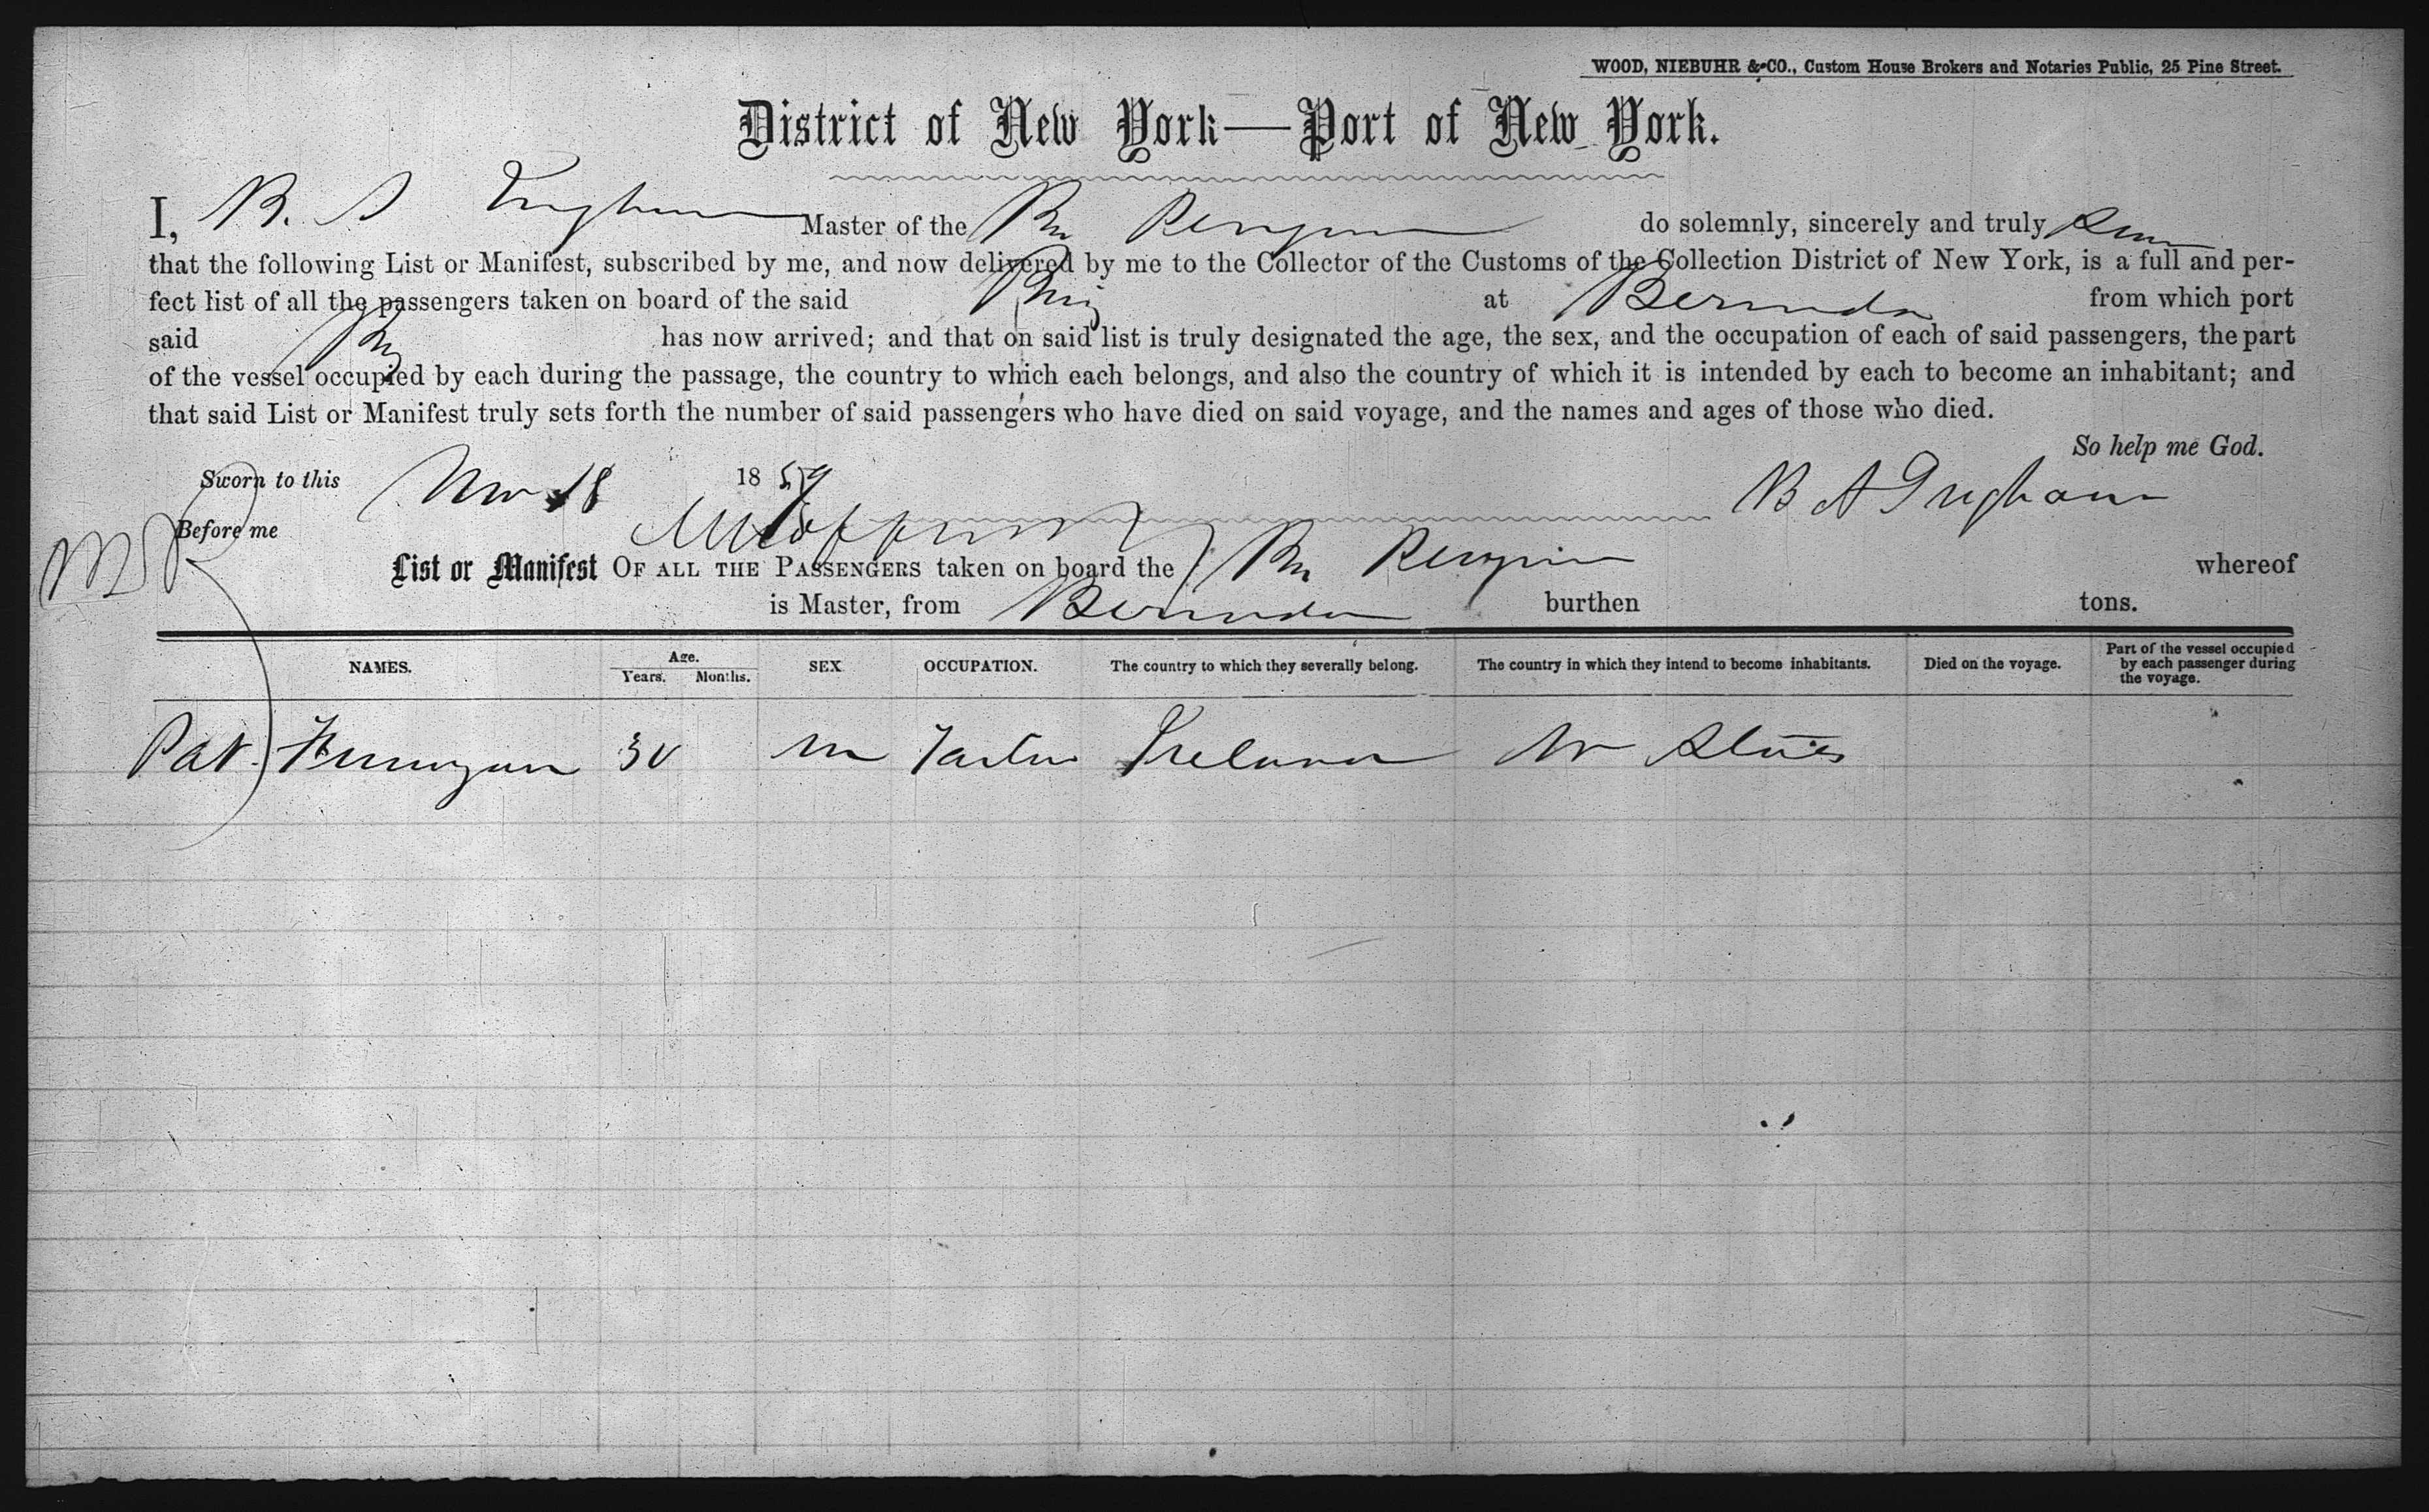 WOOD, NIEBUHR & CO., Custom House Brokers and Notaries Public, 25 Pine Street.
District of New York—Port of New York.
I, B. A Ingham Master of the Br do solemnly, sincerely and truly
that the following List or Manifest, subscribed by me, and now delivered by me to the Collector of the Customs of the Collection District of New York, is a full and per-
fect list of all the passengers taken on board of the said Brig at Bermuda from which port
said Brig has now arrived; and that on said list is truly designated the age, the sex, and the occupation of each of said passengers, the part
of the vessel occupied by each during the passage, the country to which each belongs, and also the country of which it is intended by each to become an inhabitant; and
that said List or Manifest truly sets forth the number of said passengers who have died on said voyage, and the names and ages of those who died.
So help me God.
Sworn to this Nov 18 1859
B A Ingham
Before me
List or Manifest OF ALL THE PASSENGERS taken on board the Br whereof
is Master, from Bermuda burthen tons.
NAMES. Age. Years. Months. SEX OCCUPATION. The country to which they severally belong. The country in which they intend to become inhabitants. Died on the voyage. Part of the vessel occupied by each passenger during the voyage.
Pat Finnigan 30 m Ireland States